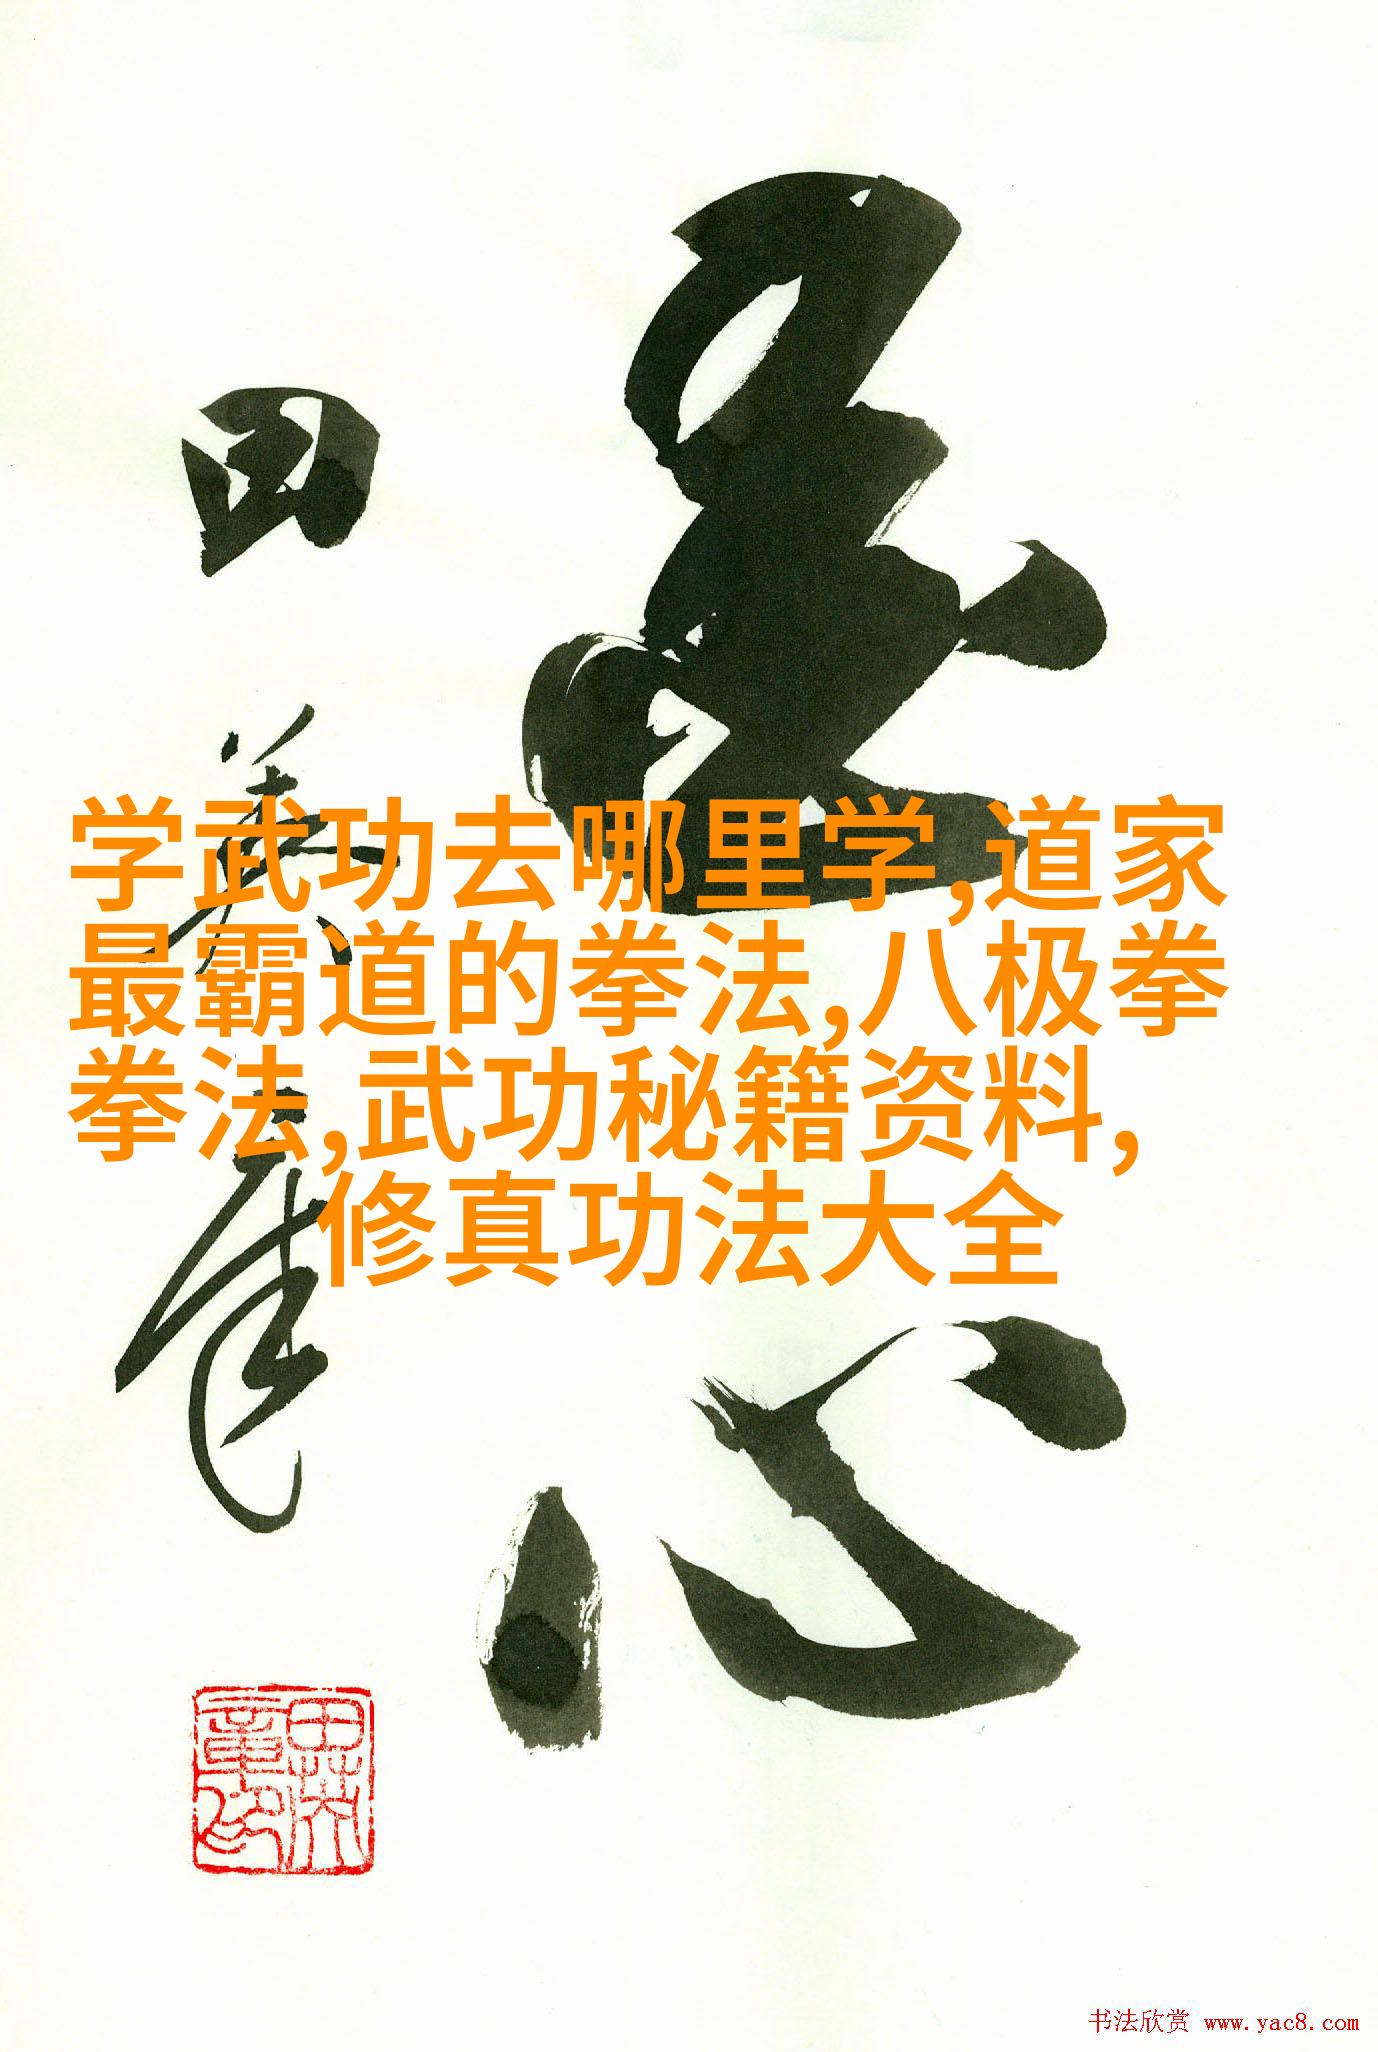 学武功去哪里学,道家
最霸道的拳法,八极拳
拳法,武功秘籍资料,
修真功法大全
心
田英章
书法欣赏 www.yac8.com